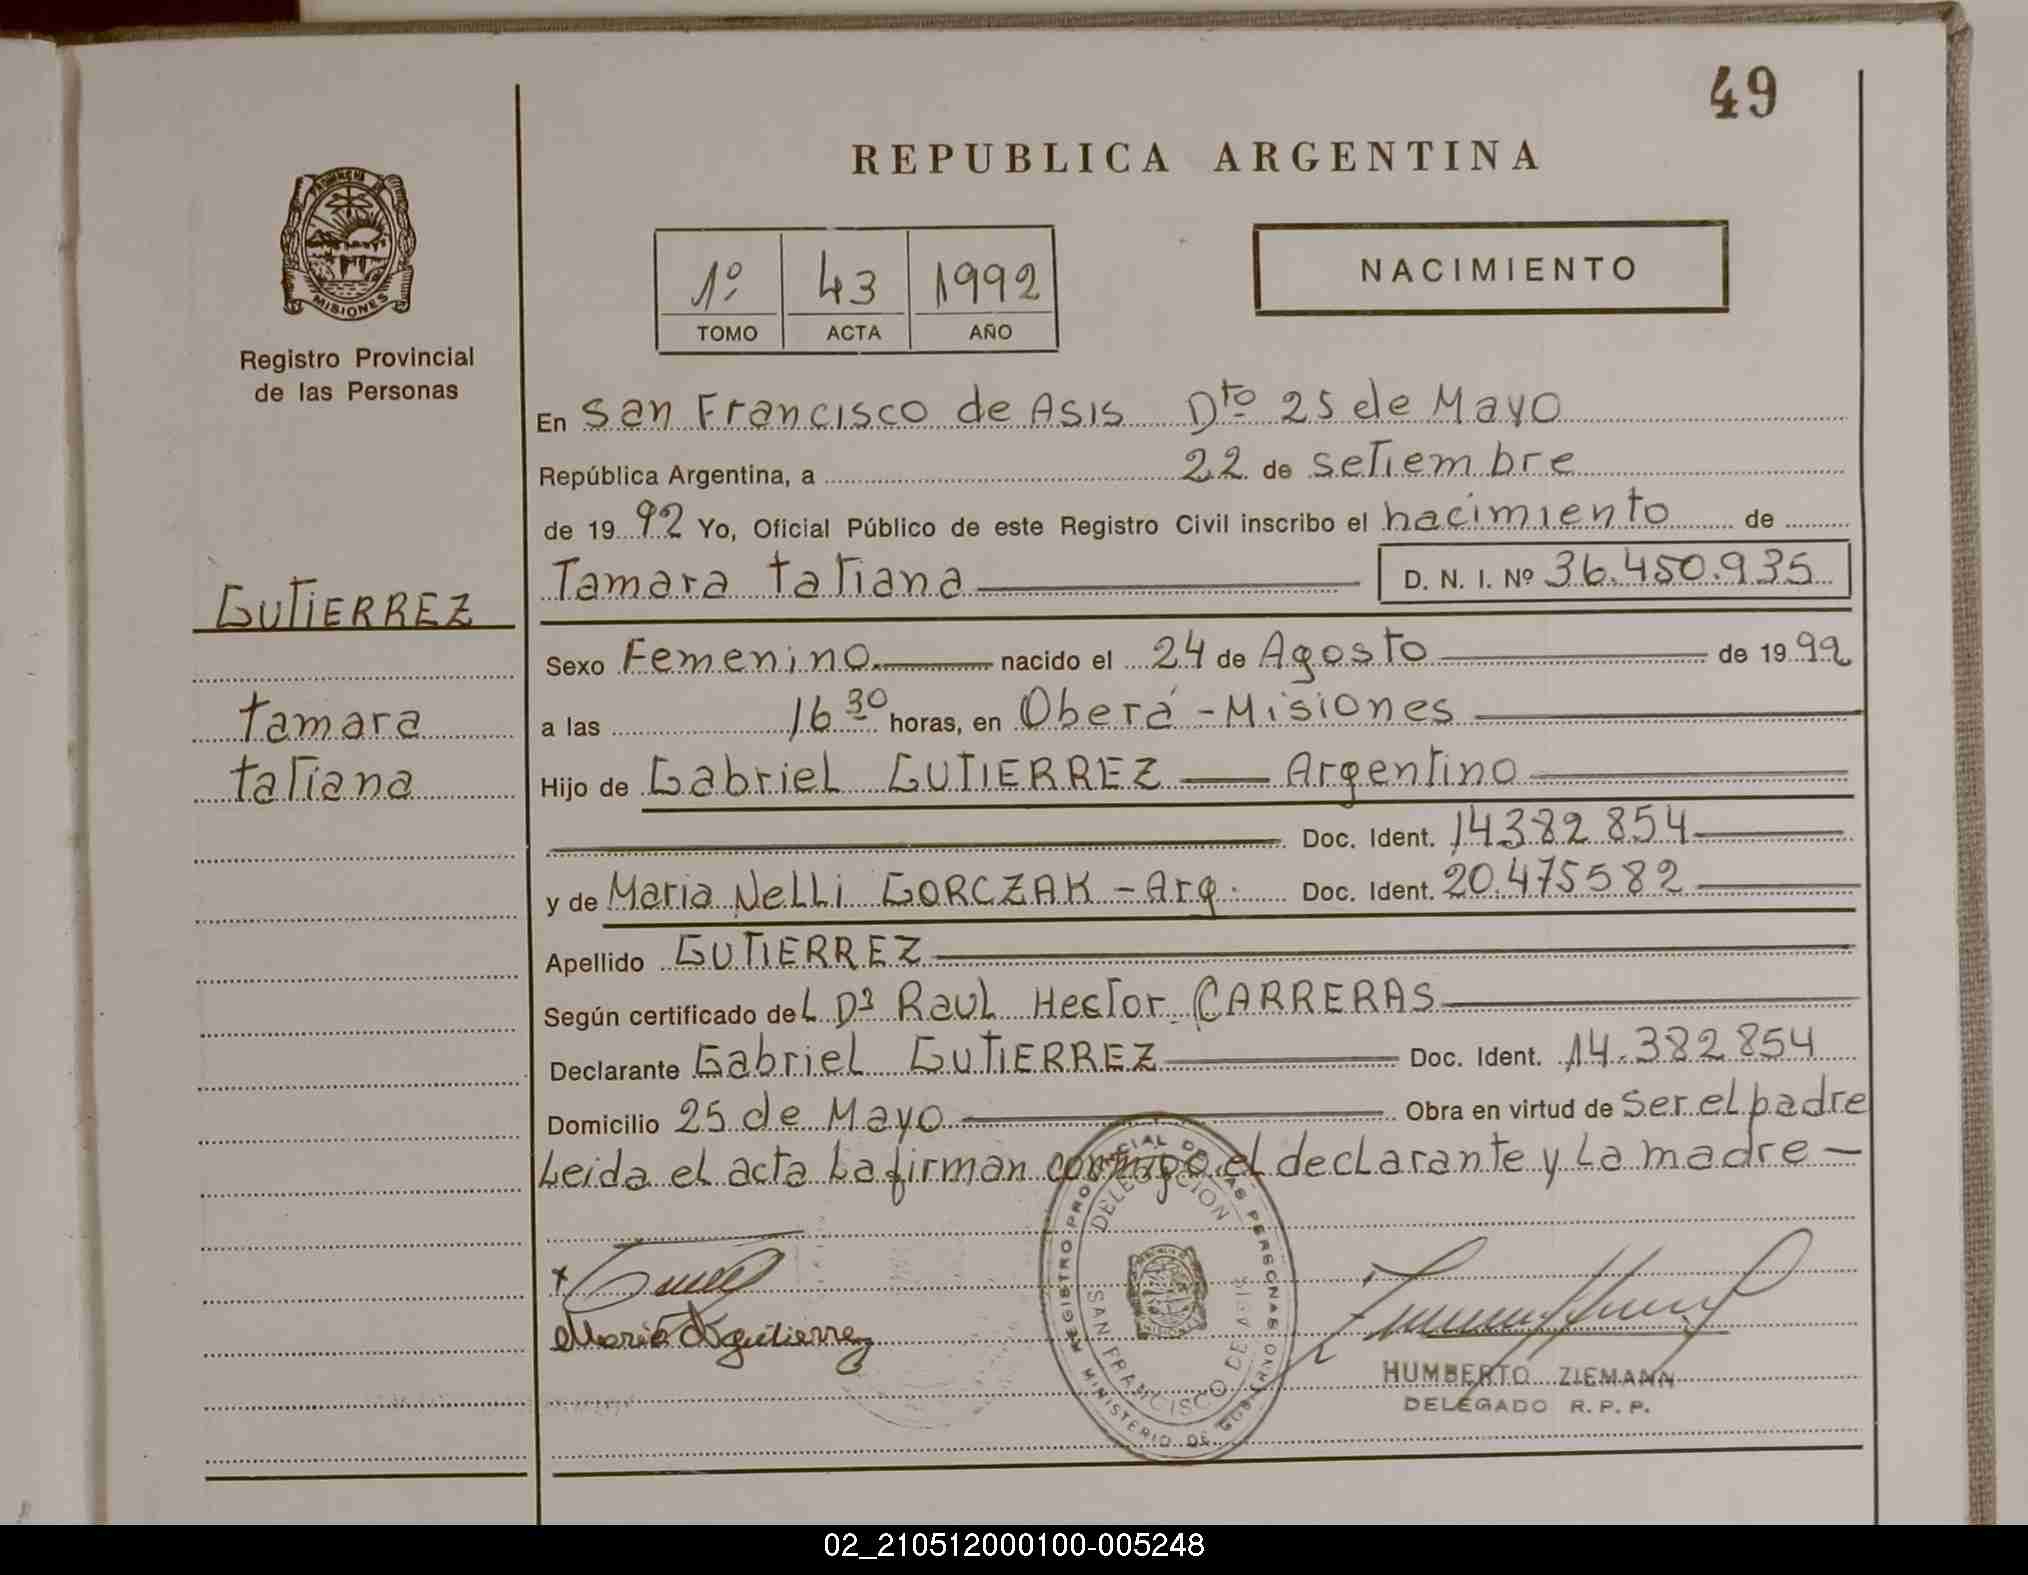 49
REPUBLICA ARGENTINA
PROVINCIA DE
MISIONES
Registro Provincial
de las Personas
1º 43 1992
TOMO ACTA AÑO
NACIMIENTO
En San Francisco de Asis Dto 25 de Mayo
República Argentina, a 22 de setiembre
de 19 92 Yo, Oficial Público de este Registro Civil inscribo el nacimiento de
Tamara tatiana D. N. I. Nº 36.450.935
GUTIERREZ
tamara
tatiana
Sexo Femenino nacido el 24 de Agosto de 19 92
a las 16 30 horas, en Oberá - Misiones
Hijo de Gabriel GUTIERREZ Argentino
Doc. Ident. 14382854
y de Maria Nelli GORCZAK - Arg. Doc. Ident. 20.475582
Apellido GUTIERREZ
Según certificado del Dr Raul Hector CARRERAS
Declarante Gabriel GUTIERREZ Doc. Ident. 14.382854
Domicilio 25 de Mayo Obra en virtud de Ser el padre
Leida el acta La firman conmigo el declarante y La madre -
Maria N gutierrez
REGISTRO PROVINCIAL DE LAS PERSONAS
MINISTERIO DE GOBIERNO
DELEGACION
SAN FRANCISCO DE ASIS
HUMBERTO ZIEMANN
DELEGADO R. P. P.
02_210512000100-005248